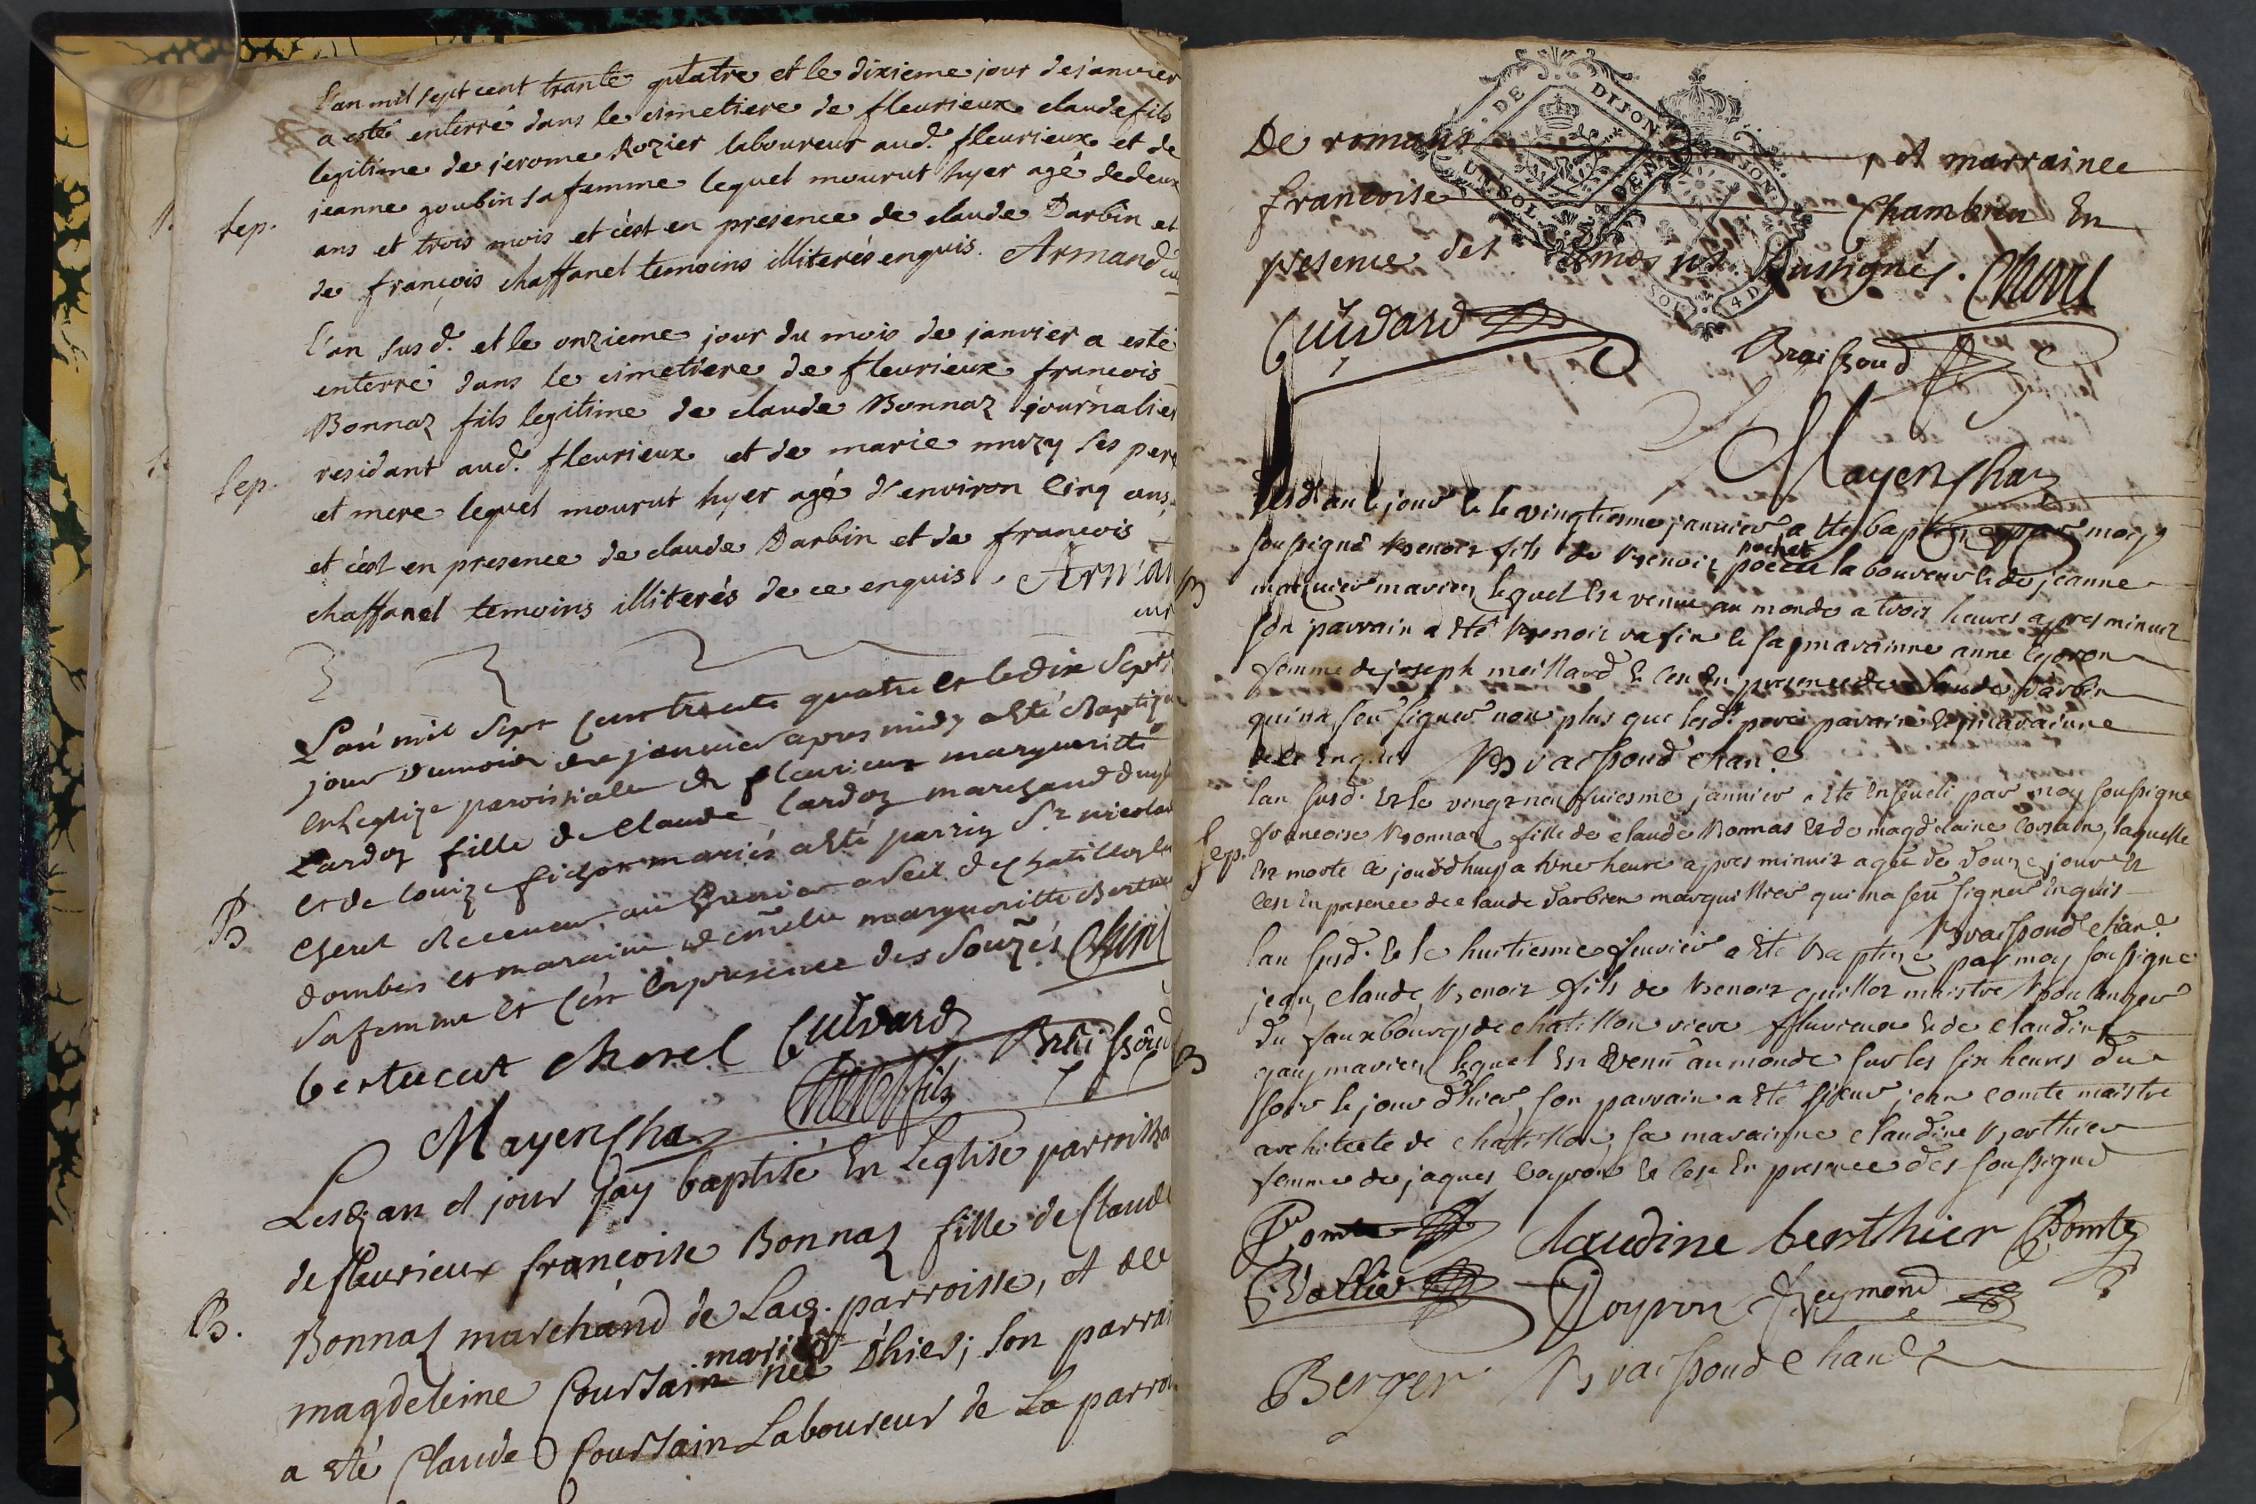 L'an mil sept cent trante quatre et le dixieme jour de janvier
a esté enterré dans le cimetiere de fleurieux claude fils
legitime de jerome Rozier laboureur aud. fleurieux et de
jeanne goubin sa famme lequel mourut hyer agé de deux
Sep. ans et trois mois et cést en presence de claude Darbin et
de françois chaffanel temoins illiterés enquis. Armand cu
l'an susd. et le onzieme jour du mois de janvier a esté
enterré dans le cimetiere de fleurieux francois
Bonnaz fils legitime de claude Bonnaz journalier
Sep. residant aud. fleurieux et de marie muzy ses pere
et mere lequel mourut hyer agé d'environ Cinq ans
et cést en presence de claude Darbin et de francois
chaffanel temoins illiterés de ce enquis. Arman
cur
L'an mil Sept Cent trente quatre et le dix Sept
jour du mois de janvier apres midy a Eté Baptizé
en Leglize paroissiale de fleurieux margueritte
Cardoz fille de Claude Cardoz marchand dud
B et de Louize fichon mariés a eté parrin Sr nicolas
Cherel Receveur au Grenier a Sel de Chatillon les
dombes et maraine margueritte Bertucat
Sa femme et C'est En presence des Souzés Chorel
bertucat chorel Cuidard
Chorel fils Braissoud
Mayenchaz
Lesd. an et jour Jay baptisé En Leglise parroissia
de fleurieux francoise Bonnaz fille de Claude
B. Bonnaz marchand de Lad. parroisse, et de
mariés
magdeleine Coursain née d'hier; son parrai
a Eté Claude Coursain Laboureur de La parroi
De romans, et marraine
francoise Chambrin En
presence des soussignés. Chorel
Cuidard Braissoud
Mayenchaz
Lesd. an le jour & le vingtieme janvier a Eté baptizé par moy
soussigné Benoit fils de Benoit pochet laboureur & de jeanne
B mariez lequel Est venu au monde a trois heures apres minuit
son parrain a Eté Benoit & sa maraine anne
femme de joseph meillard & C'est En presence de Claude Darbin
qui na seu signer non plus que lesd. pere parain & maraine
de ce Enquis Braissoud chane
lan susd. & le vingt neufviesme janvier a Eté Enseveli par moy soussigné
Sep. francoise Bonnaz fille de claude Bonnas & de magdelaine Corsain, laquelle
Est morte ce jourdhuy a Une heure apres minuit agée de douze jours &
C'est En presence de claude darbien marguillier qui na seu signer Enquis
Braissoud chane
lan susd. & le huitieme fevrier a Eté Baptizé par moy soussigné
jean Claude Benoit fils de Benoit guillot maistre Boulanger
du fauxbourg de chatillon riere fleurieux & de claudine
B gay mariez lequel Est Venu au monde sur les six heures du
soir le jour d'hier, son parrain a Eté sieur jean comte maistre
architecte de chatillon, sa maraine claudine Berthier
femme de jaques Coypon & C'est En presence des soussigné
Comte Claudine berthier Comte
Vallier Reymond
Berger Braissoud chane